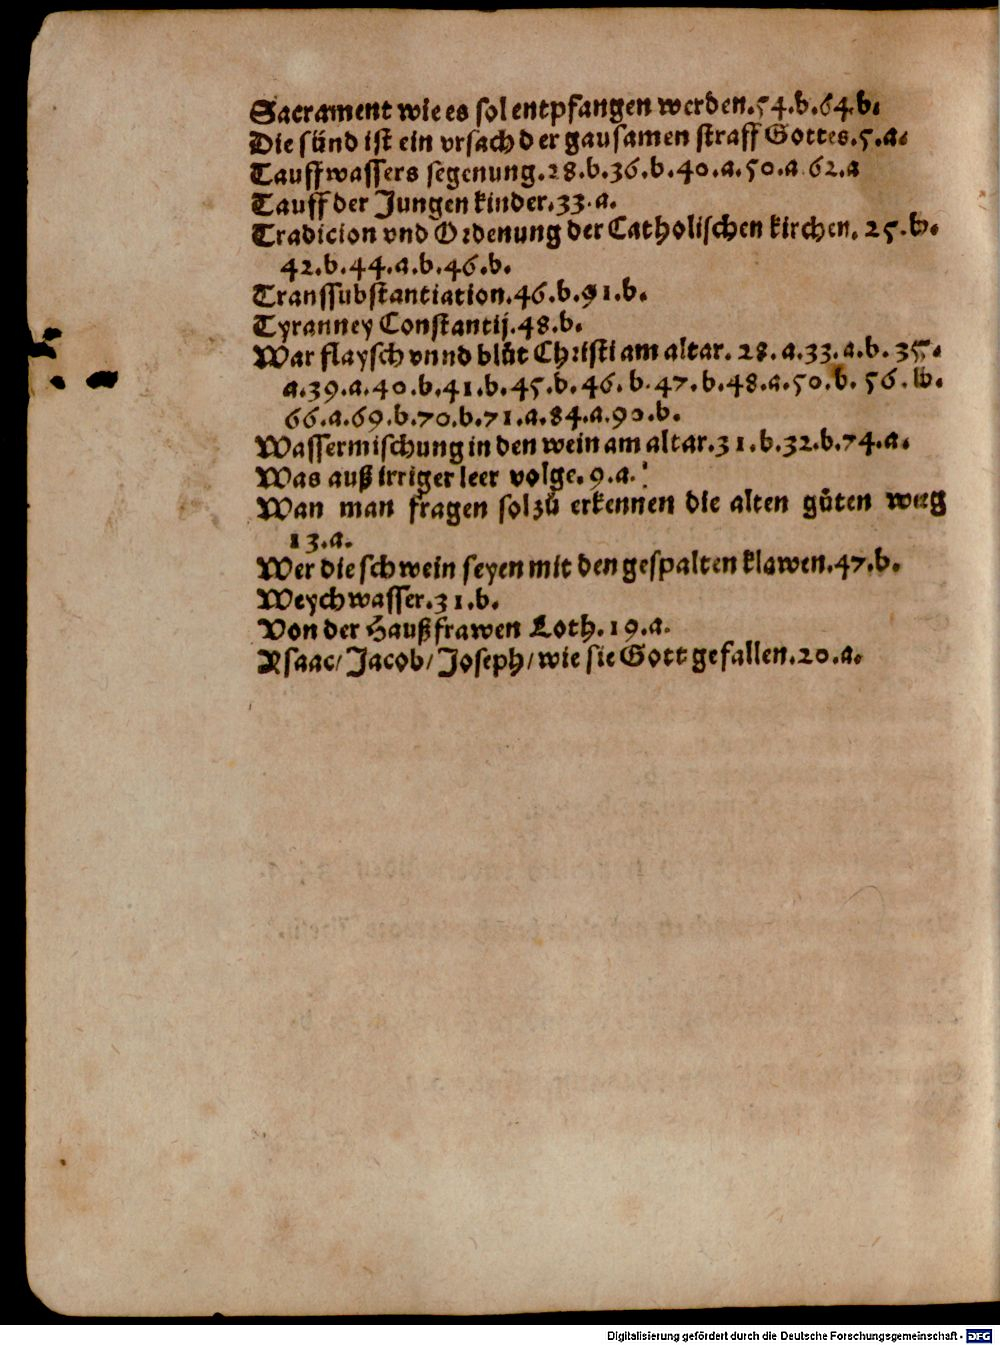 Sacrament wie es sol entpfangen werden.54.b.64.b.
Die sünd ist ein vrsach der gausamen straff Gottes.5.a.
Tauffwassers segenung.28.b.36.b.40.a.50.a.62.a
Tauff der Jungen kinder.33.a.
Tradicion vnd Ordenung der Catholischen kirchen. 25.b.
42.b.44.a.b.46.b.
Transsubstantiation.46.b.91.b.
Tyranney Constantij.48.b.
War flaysch vnnd blůt Christi am altar. 28.a.33.a.b. 35.
a.39.a.40.b.41.b.45.b.46.b.47.b.48.a.50.b. 56.b.
66.a.69.b.70.b.71.a.84.a.90.b.
Wassermischung in den wein am altar.31.b.32.b.74.a.
Was auß irriger leer volge.9.a.
Wan man fragen sol zů erkennen die alten gůten weg
13.a.
Wer die schwein seyen mit den gespalten klawen.47.b.
Weychwasser.31.b.
Von der Haußfrawen Loth.19.a.
Ysaac/Jacob/Joseph/wie sie Gott gefallen.20.a.
Digitalisierung gefördert durch die Deutsche Forschungsgemeinschaft - DFG